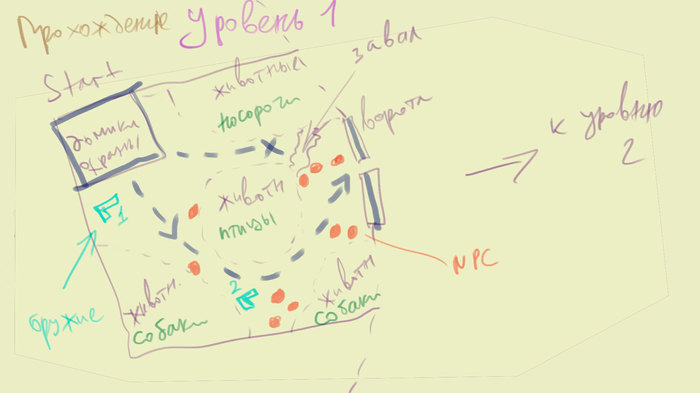 Прохождение Уровень 1
Start
завал
животные
носороги
ворота
домик
охраны
к уровню
2
животн
птицы
1
NPC
2
животн.
собаки
животн
собаки
оружие